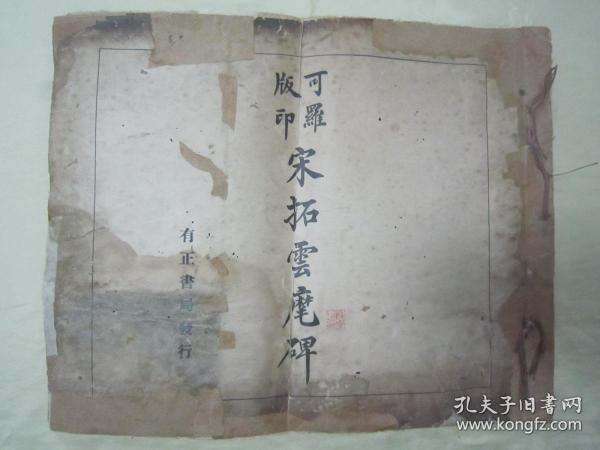 可羅
版印
宋拓雲麾碑
有正書局發行
孔夫子旧书网
www.kongfz.com